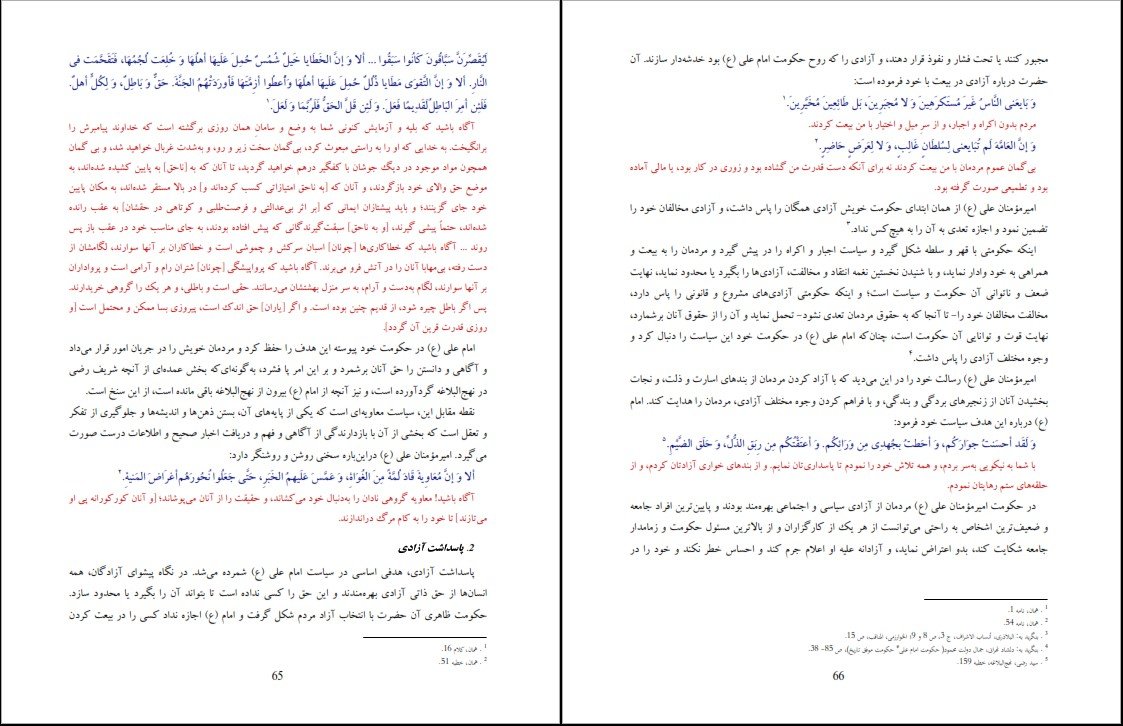 لَیُقَصِّرَنَّ سَبَّاقُونَ کَانُوا سَبَقُوا ... ألا وَ إنَّ الخَطَایا خَیلٌ شُمُسٌ حُمِلَ عَلَیهَا أهلُهَا وَ خُلِعَت لُجُمُهَا، فَتَقَحَّمَت فِی
النَّارِ. ألا وَ إنَّ التَّقوَی مَطَایا ذُلُلٌ حُمِلَ عَلَیهَا أهلُهَا وَأُعطُوا أزِمَّتَهَا فَأورَدَتهُمُ الجَنَّةَ. حَقٌّ وَ بَاطِلٌ، وَ لِکُلٍّ أهلٌ.
فَلَئِن أمِرَ البَاطِلُ لَقَدِیمًا فَعَلَ. وَ لَئِن قَلَّ الحَقُّ فَلَرُبَّمَا وَ لَعَلَّ.¹
آگاه باشید که بلیه و آزمایش کنونی شما به وضع و سامان همان روزی برگشته است که خداوند پیامبرش را
برانگیخت. به خدایی که او را به راستی مبعوث کرد، بی‌گمان سخت زیر و رو، و به‌شدت غربال خواهید شد، و بی گمان
همچون مواد موجود در دیگ جوشان با کفگیر درهم خواهید گردید، تا آنان که به [ناحق] به پایین کشیده شده‌اند، به
موضع حق والای خود بازگردند، و آنان که [به ناحق امتیازاتی کسب کرده‌اند و] در بالا مستقر شده‌اند، به مکان پایین
خود جای گزینند؛ و باید پیشتازان ایمانی که [بر اثر بی‌عدالتی و فرصت‌طلبی و کوتاهی در حقشان] به عقب رانده
شده‌اند، حتماً پیشی گیرند، [و به ناحق] سبقت‌گیرندگانی که پیش افتاده بودند، به جای مناسب خود در عقب باز پس
روند ... آگاه باشید که خطاکاری‌ها [چونان] اسبان سرکش و چموشی است و خطاکاران بر آنها سوارند، لگامشان از
دست رفته، بی‌مهابا آنان را در آتش فرو می‌برند. آگاه باشید که پرواپیشگی [چونان] شتران رام و آرامی است و پرواداران
بر آنها سوارند، لگام به‌دست و آرام، به سر منزل بهشتشان می‌رسانند. حقی است و باطلی، و هر یک را گروهی خریدارند.
پس اگر باطل چیره شود، از قدیم چنین بوده است. و اگر [یاران] حق اندک است، پیروزی بسا ممکن و محتمل است [و
روزی قدرت قرین آن گردد].
امام علی (ع) در حکومت خود پیوسته این هدف را حفظ کرد و مردمان خویش را در جریان امور قرار می‌داد
و آگاهی و دانستن را حق آنان برشمرد و بر این امر پا فشرد، به‌گونه‌ای‌که بخش عمده‌ای از آنچه شریف رضی
در نهج‌البلاغه گردآورده است، و نیز آنچه از امام (ع) بیرون از نهج‌البلاغه باقی مانده است، از این سنخ است.
نقطه مقابل این، سیاست معاویه‌ای است که یکی از پایه‌های آن، بستن ذهن‌ها و اندیشه‌ها و جلوگیری از تفکر
و تعقل است که بخشی از آن با بازدارندگی از آگاهی و فهم و دریافت اخبار صحیح و اطلاعات درست صورت
می‌گیرد. امیرمؤمنان علی (ع) دراین‌باره سخنی روشن و روشنگر دارد:
ألا وَ إنَّ مُعَاوِیةَ قَادَ لُمَةً مِنَ الغُوَاةِ، وَ عَمَّسَ عَلَیهِمُ الخَبَرَ، حَتَّی جَعَلُوا نُحُورَهُم أعرَاضَ المَنیةِ.²
آگاه باشید! معاویه گروهی نادان را به‌دنبال خود می‌کشاند، و حقیقت را از آنان می‌پوشاند؛ [و آنان کورکورانه پی او
می‌تازند] تا خود را به کام مرگ دراندازند.
2. پاسداشت آزادی
پاسداشت آزادی، هدفی اساسی در سیاست امام علی (ع) شمرده می‌شد. در نگاه پیشوای آزادگان، همه
انسان‌ها از حق ذاتی آزادی بهره‌مندند و این حق را کسی نداده است تا بتواند آن را بگیرد یا محدود سازد.
حکومت ظاهری آن حضرت با انتخاب آزاد مردم شکل گرفت و امام (ع) اجازه نداد کسی را در بیعت کردن
¹ . همان، کلام 16.
² . همان، خطبه 51.
65
مجبور کنند یا تحت فشار و نفوذ قرار دهند، و آزادی را که روح حکومت امام علی (ع) بود خدشه‌دار سازند. آن
حضرت درباره آزادی در بیعت با خود فرموده است:
وَ بَایعَنِی النَّاسُ غَیرَ مُستَکرَهِینَ وَ لا مُجبَرِینَ، بَل طَائِعِینَ مُخَیَّرِینَ.¹
مردم بدون اکراه و اجبار، و از سرِ میل و اختیار با من بیعت کردند.
وَ إنَّ العَامَّةَ لَم تُبَایعنِی لِسُلطَانٍ غَالِبٍ، وَ لا لِعَرَضٍ حَاضِرٍ.²
بی‌گمان عموم مردمان با من بیعت کردند نه برای آنکه دست قدرت من گشاده بود و زوری در کار بود، یا مالی آماده
بود و تطمیعی صورت گرفته بود.
امیرمؤمنان علی (ع) از همان ابتدای حکومت خویش آزادی همگان را پاس داشت، و آزادی مخالفان خود را
تضمین نمود و اجازه تعدی به آن را به هیچ‌کس نداد.³
اینکه حکومتی با قهر و سلطه شکل گیرد و سیاست اجبار و اکراه را در پیش گیرد و مردمان را به بیعت و
همراهی به خود وادار نماید، و با شنیدن نخستین نغمه انتقاد و مخالفت، آزادی‌ها را بگیرد یا محدود نماید، نهایت
ضعف و ناتوانی آن حکومت و سیاست است؛ و اینکه حکومتی آزادی‌های مشروع و قانونی را پاس دارد،
مخالفت مخالفان خود را- تا آنجا که به حقوق مردمان تعدی نشود- تحمل نماید و آن را از حقوق آنان برشمارد،
نهایت قوت و توانایی آن حکومت است، چنان‌که امام علی (ع) در حکومت خود این سیاست را دنبال کرد و
وجوه مختلف آزادی را پاس داشت.⁴
امیرمؤمنان علی (ع) رسالت خود را در این می‌دید که با آزاد کردن مردمان از بندهای اسارت و ذلت، و نجات
بخشیدن آنان از زنجیرهای بردگی و بندگی، و با فراهم کردن وجوه مختلف آزادی، مردمان را هدایت کند. امام
(ع) درباره این هدف سیاست خود فرمود:
وَ لَقَد أحسَنتُ جِوَارَکُم، وَ أحَطتُ بِجُهدِی مِن وَرَائِکُم. وَ أعتَقتُکُم مِن رِبَقِ الذُّلِّ، وَ حَلَقِ الضَّیمِ.⁵
با شما به نیکویی به‌سر بردم، و همه تلاش خود را نمودم تا پاسداری‌تان نمایم. و از بندهای خواری آزادتان کردم، و از
حلقه‌های ستم رهایتان نمودم.
در حکومت امیرمؤمنان علی (ع) مردمان از آزادی سیاسی و اجتماعی بهره‌مند بودند و پایین‌ترین افراد جامعه
و ضعیف‌ترین اشخاص به راحتی می‌توانست از هر یک از کارگزاران و از بالاترین مسئول حکومت و زمامدار
جامعه شکایت کند، بدو اعتراض نماید، و آزادانه علیه او اعلام جرم کند و احساس خطر نکند و خود را در
¹ . همان، نامه 1.
² . همان، نامه 54.
³ . بنگرید به: البلاذری، أنساب الاشراف، ج 3، ص 8 و 9؛ الخوارزمی، المناقب، ص 15.
⁴ . بنگرید به: دلشاد تهرانی، جمال دولت محمود( حکومت امام علی* حکومت موفق تاریخ)، ص 85- 38.
⁵ . سید رضی، نهج‌البلاغه، خطبه 159.
66